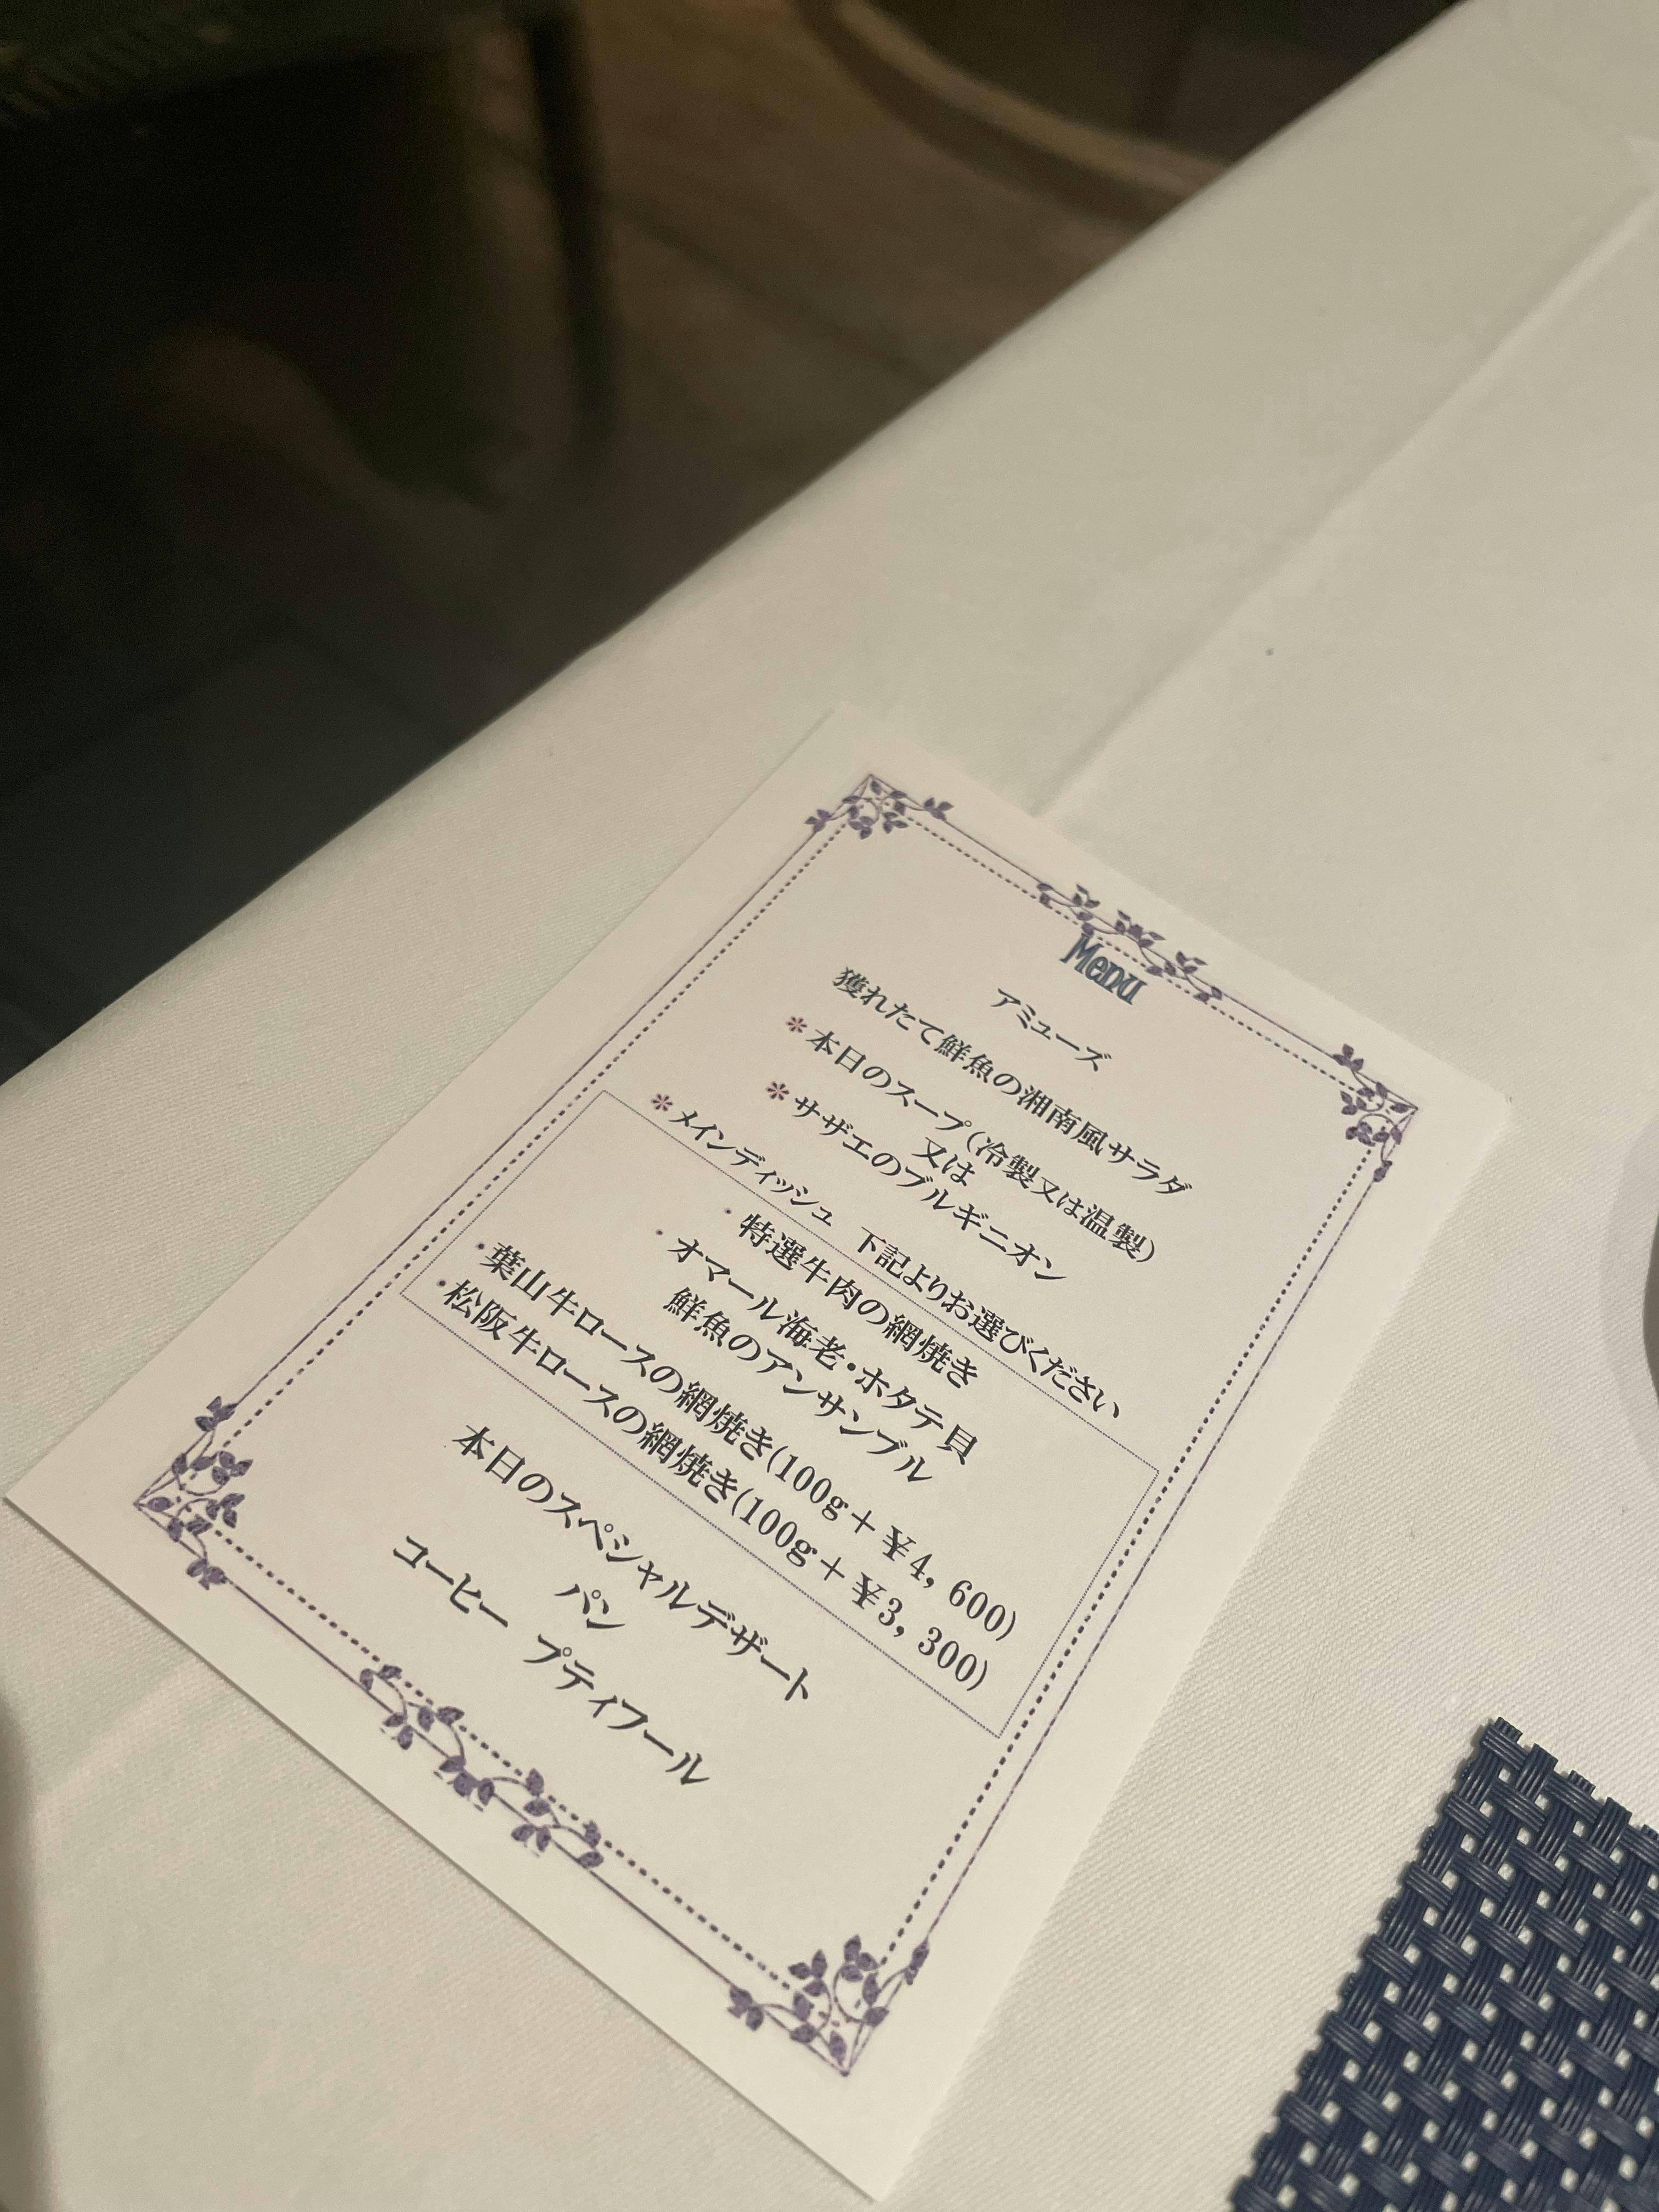 Menu
アミューズ
獲れたて鮮魚の湘南風サラダ
＊本日のスープ(冷製又は温製)
又は
＊サザエのブルギニオン
＊メインディッシュ 下記よりお選びください
・特選牛肉の網焼き
・オマール海老・ホタテ貝
鮮魚のアンサンブル
・葉山牛ロースの網焼き(100g＋¥4, 600)
・松阪牛ロースの網焼き(100g＋¥3, 300)
本日のスペシャルデザート
パン
コーヒー プティフール